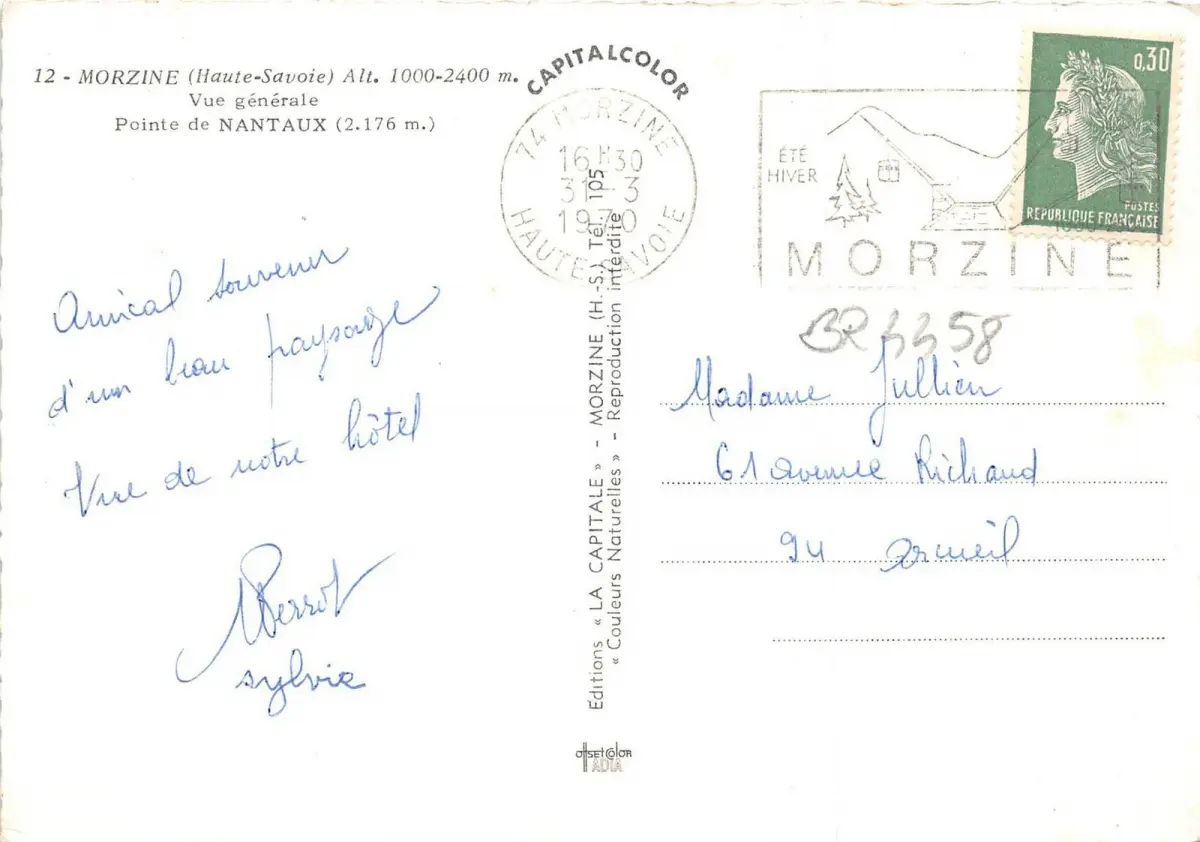 12 - MORZINE (Haute-Savoie) Alt. 1000-2400 m.
Vue générale
Pointe de NANTAUX (2.176 m.)
CAPITALCOLOR
74 MORZINE
16 H 30
31-3
1970
HAUTE-SAVOIE
ÉTÉ
HIVER
MORZINE
0,30
POSTES
REPUBLIQUE FRANÇAISE
Amical souvenir
d'un beau paysage
Vue de notre hôtel
Perrot
sylvie
Editions « LA CAPITALE » - MORZINE (H.-S.) Tél. 105
« Couleurs Naturelles » - Reproduction interdite
OffsetColor
IADIA
58
Madame Jullien
61 avenue Richaud
94 Arcueil